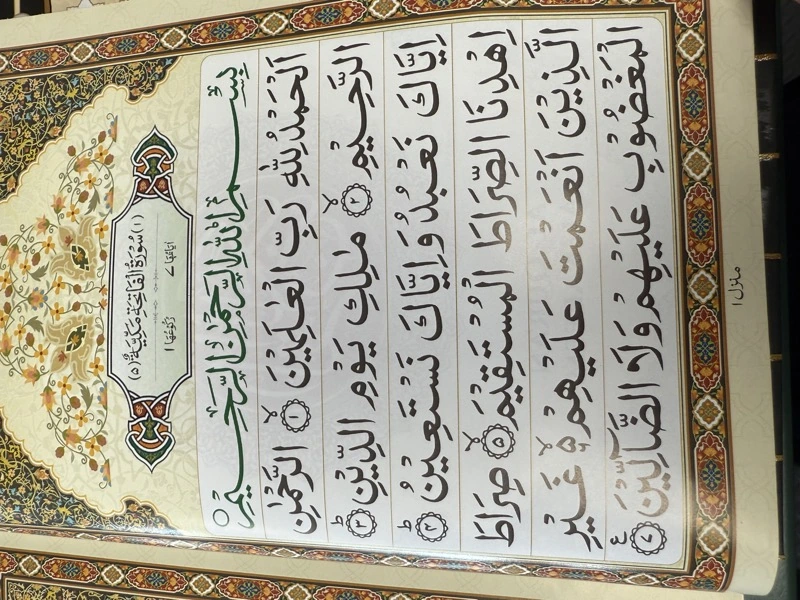 (١) سُوْرَةُ الْفَاتِحَةِ مَكِّيَّةٌ (٥)
اٰيَاتُهَا ٧ رُكُوْعُهَا ١
بِسْمِ اللّٰهِ الرَّحْمٰنِ الرَّحِيْمِ
اَلْحَمْدُ لِلّٰهِ رَبِّ الْعٰلَمِيْنَ ۙ﴿١﴾ الرَّحْمٰنِ
الرَّحِيْمِ ۙ﴿٢﴾ مٰلِكِ يَوْمِ الدِّيْنِ ؕ﴿٣﴾
اِيَّاكَ نَعْبُدُ وَاِيَّاكَ نَسْتَعِيْنُ ؕ﴿٤﴾
اِهْدِنَا الصِّرَاطَ الْمُسْتَقِيْمَ ۙ﴿٥﴾ صِرَاطَ
الَّذِيْنَ اَنْعَمْتَ عَلَيْهِمْ ۙ۬ۙ غَيْرِ
الْمَغْضُوْبِ عَلَيْهِمْ وَلَا الضَّآلِّيْنَ ﴿٧﴾ ع
منزل ١